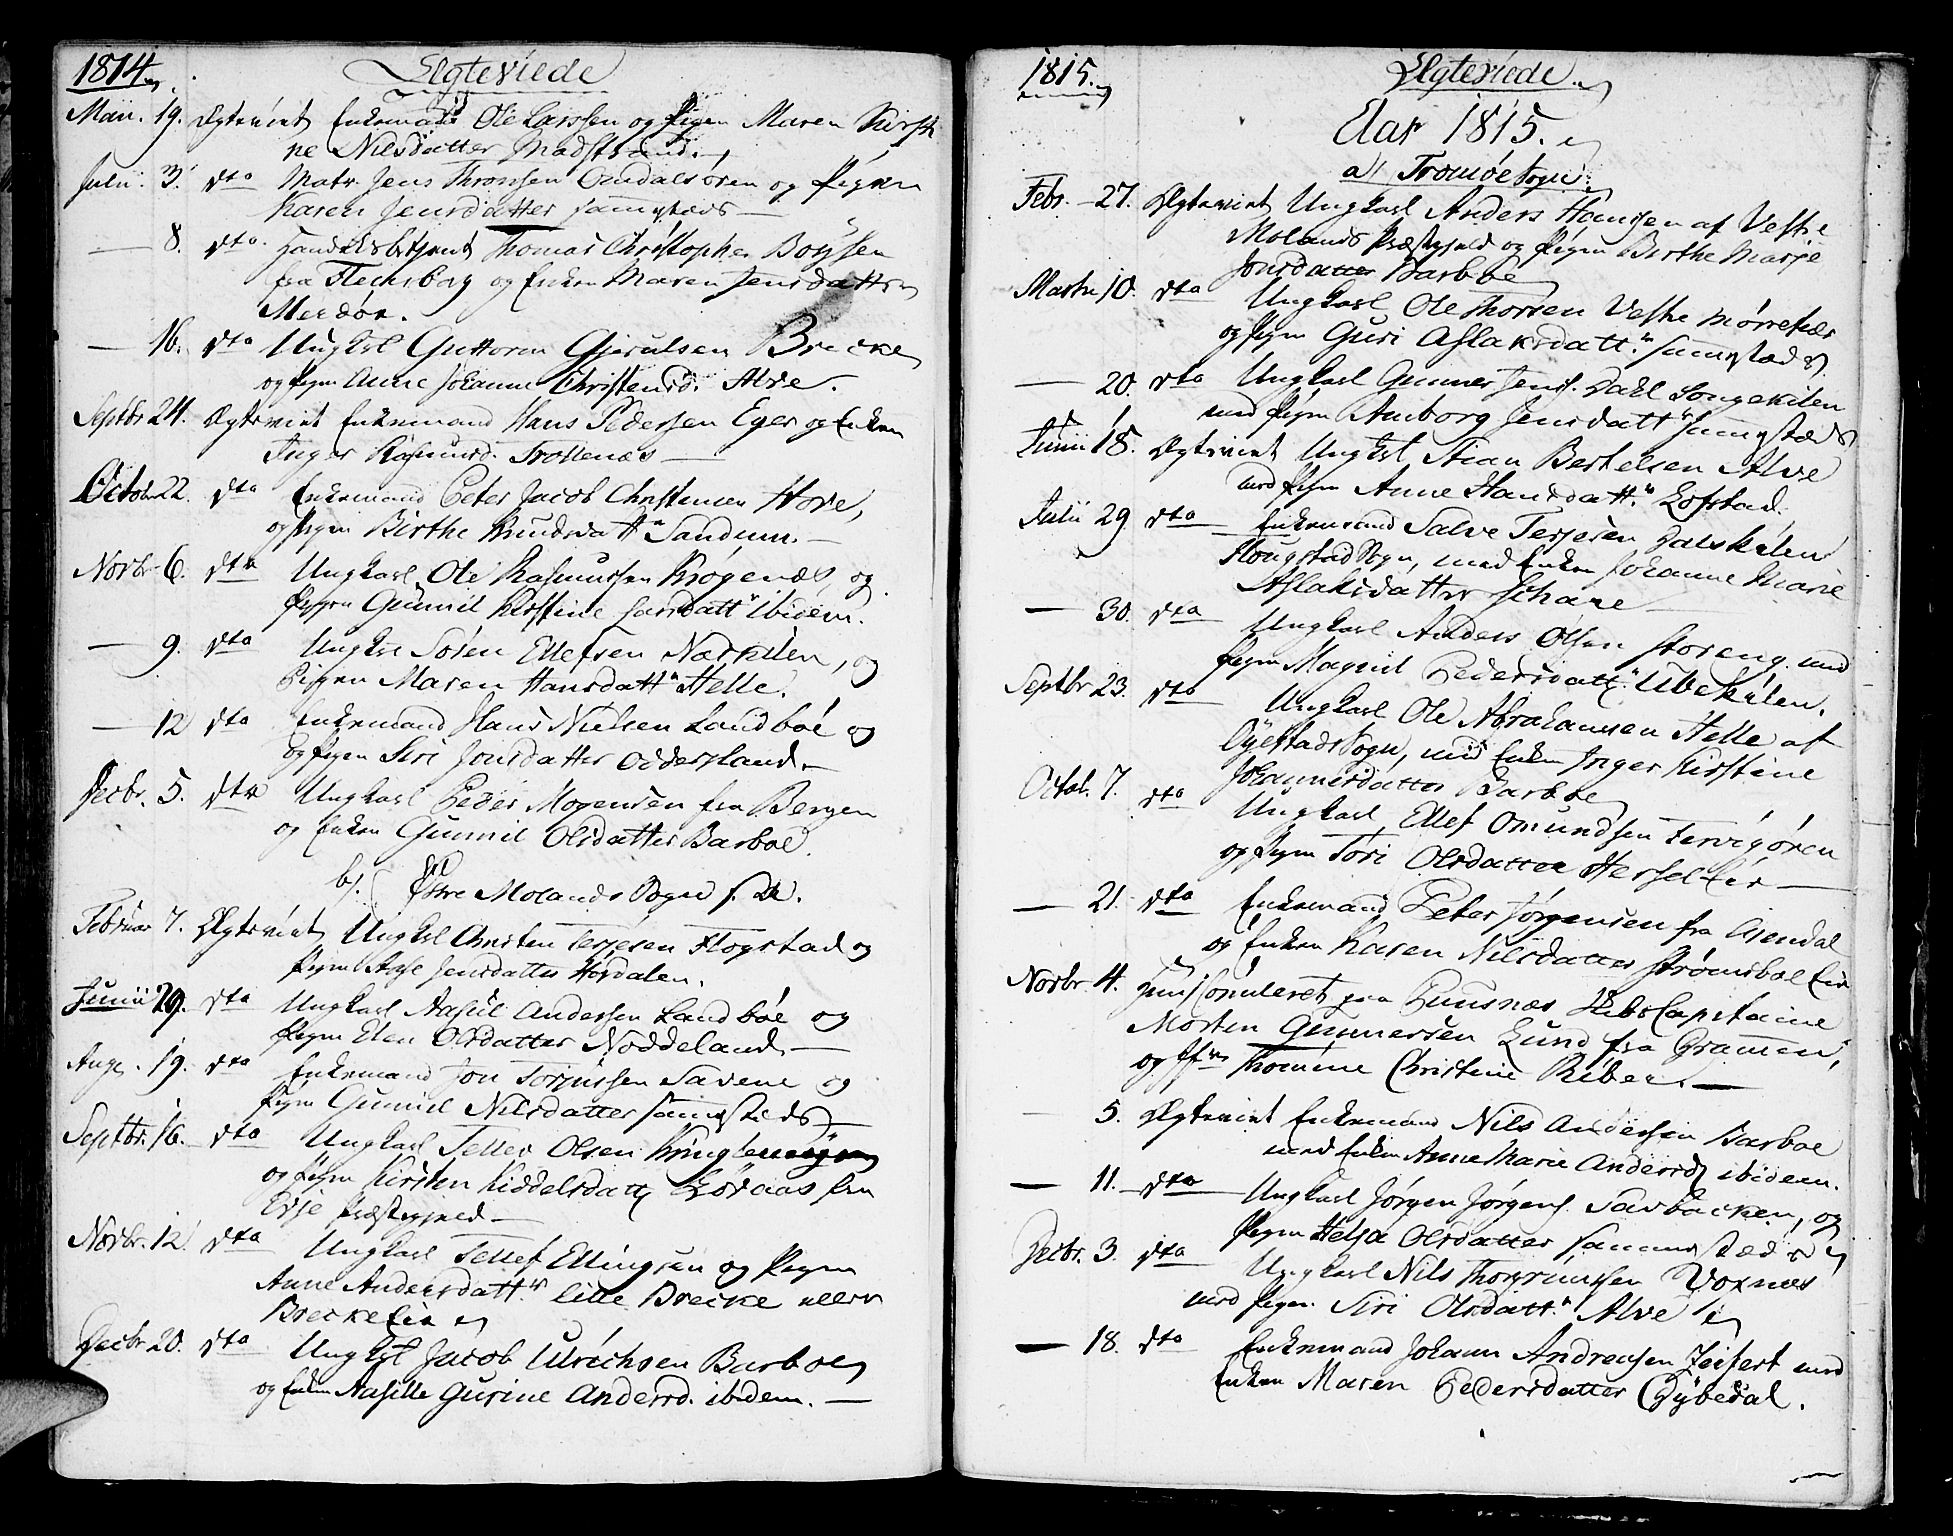 1814.
Ægteviede
Maii. 19. Ægteviet Enkemand Ole Larssen og Pigen Maren Kirsti
ne Nilsdatter Madstrand.
Julii. 3. dto Matr. Jens Thronsen Omdalsøren og Pigen
Karen Jensdatter sammesteds
— 8. dto. Handelsbetjent Thomas Christopher Boysen
fra Flecksborg og Enken Maren Jensdatter
Merdøe.
— 16. dto Ungkarl Guttorm Gjerulsen Brecke
og Pigen Anne Johanne Christensd. Alve.
Septbr 24. Ægteviet Enkemand Hans Pedersen Eger og Enken
Inger Rasmusd. Trollenæs
Octob. 22. dto Enkemand Peter Jacob Christensen Hove,
og Pigen Birthe Knudsdattr Sandum.
Novbr 6. dto Ungkarl Ole Rasmussen Krøgenæs, og
Pigen Gunnil Kirstine Larsdattr ibidem.
— 9. dto Ungkarl Søren Ellefsen Nærkilen, og
Pigen Maren Hansdattr Helle.
— 12 dto Enkemand Hans Nielsen Landbøe og
og Pigen Siri Jonsdatter Oddersland.
Decbr. 5. dto Ungkarl Peder Mogensen fra Bergen
og Enken Gunnil Olsdatter Barboe.
b). Østre Molands Sogn
Februar 7. Ægteviet Ungkarl Christen Terjesen Flogstad og
Pigen Aase Jensdatter Hovdalen.
Junii 29. dto Ungkarl Aasul Andersen Landbøe og
Pigen Elen Olsdatter Noddeland.
Aug. 19. dto Enkemand Jon Torjussen Savene og
Pigen Gunnil Nilsdatter sammesteds
Septbr. 16. dto Ungkarl Tellev Olsen
og Pigen Kirsten Kiddelsdattr fra
Evje Præstegjeld
Novbr. 12. dto Ungkarl Tellef Ellingsen og Pigen
Anne Andersdattr. lille Brecke eller
Breckelia
Decbr 20. dto Ungkarl Jacob Ulrichsen Barboe
og Enken Aasille Gurine Andersd. ibidem.
1815.
Ægteviede.
Aar 1815.
a) Tromøe Sogn.
Febr. 27. Ægteviet Ungkarl Anders Hansen af Vestre
Molands Præstegjeld og Pigen Birthe Marje
Jonsdatter Barboe
Martii 10. dto Ungkarl Ole Thorsen Vestre Mørrefiær
og Pigen Guri Aslaksdattr. sammesteds
— 20. dto Ungkarl Gunner Jens. Dahl Songekilen
med Pigen Anborg Jensdattr sammesteds
Junii 18. Ægteviet Ungkarl Stian Bertelsen Alve
med Pigen Anne Hansdattr. Lofstad.
Julii 29 dto Enkemand Salve Terjesen Dalskilen
Hougstad Sogn, med Enken Johanne Marie
Aslaksdatter
— 30. dto Ungkarl Anders Olsen Storeng med
Pigen Magnil Pedersdattr. Ubekilen.
Septbr 23. dto Ungkarl Ole Abrahamsen Helle af
Øyestad Sogn, med Enken Inger Kirstine
Johannesdatter Barboe
Octob. 7. dto Ungkarl Ellef Omundsen Tervigøren
og Pigen Tori Olsdatter Herselleir
— 21. dto Enkemand Peter Jørgensen fra Arendal
og Enken Karen Nilsdatter Strømsboelie
Novbr. 4. paa Puusnæs Capitaine
Morten Gunnersen Lund fra Dramen,
og Thomine Christine Riber.
5. Ægteviet Enkemand Nils Andersen Barboe
med Enken Anne Marie Andersd. ibidem.
— 11. dto Ungkarl Jørgen Jørgens. Saxbacken, og
Pigen Helja Olsdatter sammesteds
Decbr. 3. dto Ungkarl Nils Thorsrimsen Voxnæs
med Pigen Siri Olsdattr. Alve
— 18. dto Enkemand Johann Andreasen Zeifert med
Enken Maren Pedersdatter Gybedal.